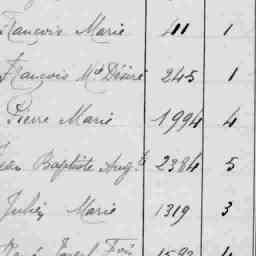 François Marie 411 1
François Mie Désiré 245 1
Pierre Marie 1994 4
Jean Baptiste Augte 2384 5
Julien Marie 1319 3
René Joseph Fois 1593 4